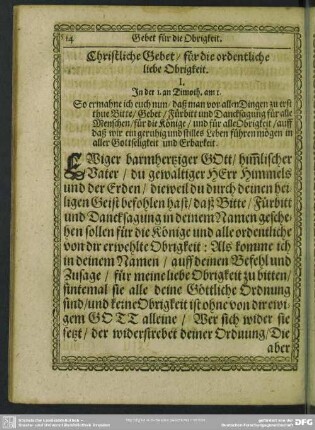 14 Gebet für die Obrigkeit.
Christliche Gebet / für die ordentliche
liebe Obrigkeit.
I.
In der 1. an Timoth. am 2.
So ermahne ich euch nun / daß man vor allen Dingen zu erst
thue Bitte / Gebet / Fürbitt und Dancksagung für alle
Menschen / für die Könige / und für alle Obrigkeit / auff
daß wir ein geruhig und stilles Leben führen mögen in
aller Gottseligkeit und Erbarkeit.
EWiger barmhertziger GOtt / him̃lischer
Vater / du gewaltiger HErr Himmels
und der Erden / dieweil du durch deinen hei-
ligen Geist befohlen hast / daß Bitte / Fürbitt
und Dancksagung in deinem Namen gesche-
hen sollen für die Könige und alle ordentliche
von dir erwehlte Obrigkeit: Als komme ich
in deinem Namen / auff deinen Befehl und
Zusage / für meine liebe Obrigkeit zu bitten /
sintemal sie alle deine Göttliche Ordnung
sind / und keine Obrigkeit ist ohne von dir ewi-
gem GOTT alleine / Wer sich wider sie
setzt / der widerstrebet deiner Ordnung / Die
aber